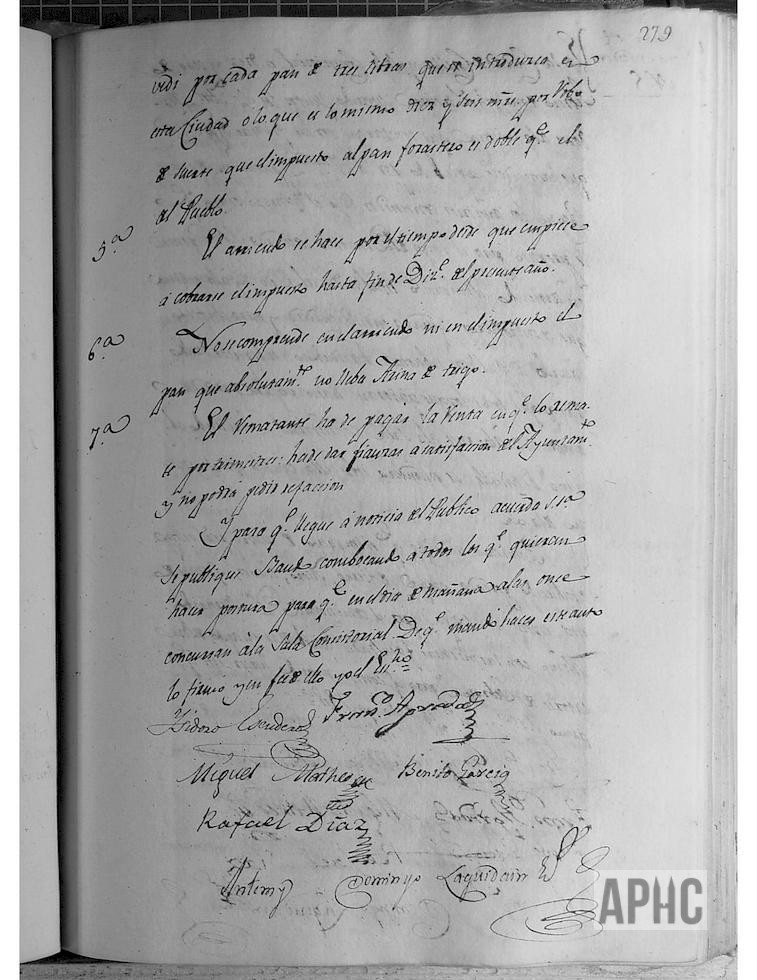 279
vedi por cada pan de tres libras que se introduzca en
esta Ciudad o lo que es lo mismo diez y seis mrs. por
de suerte que el impuesto al pan forastero es doble qe. el
del Pueblo.
5.a El arriendo se hace por el tiempo desde que empiece
á cobrarse el impuesto hasta fin de Dize. del presente año.
6.a No se comprende en el arriendo ni en el impuesto el
pan que absolutamte. no lleba Arina de trigo.
7.a El Rematante ha de pagar la Renta en qe. lo rema-
te por trimestres: ha de dar fianzas á satisfaccion del Ayuntamto.
y no podrá pedir refaccion
Y para qe. llegue á noticia del Publico acuerda S. Sa.
se publique Bando combocando a todos los qe. quieran
hacer postura para qe. en el dia de mañana a las once
concurran á la Sala Consistorial. De qe. mandó hacer este auto
lo firmó y en fee de ello yo el Essno=
Ysidoro Escudero Franco.
Miguel Matheo Benito Garcia
Rafael Diaz
Antemy Domingo Laguidain
APHC